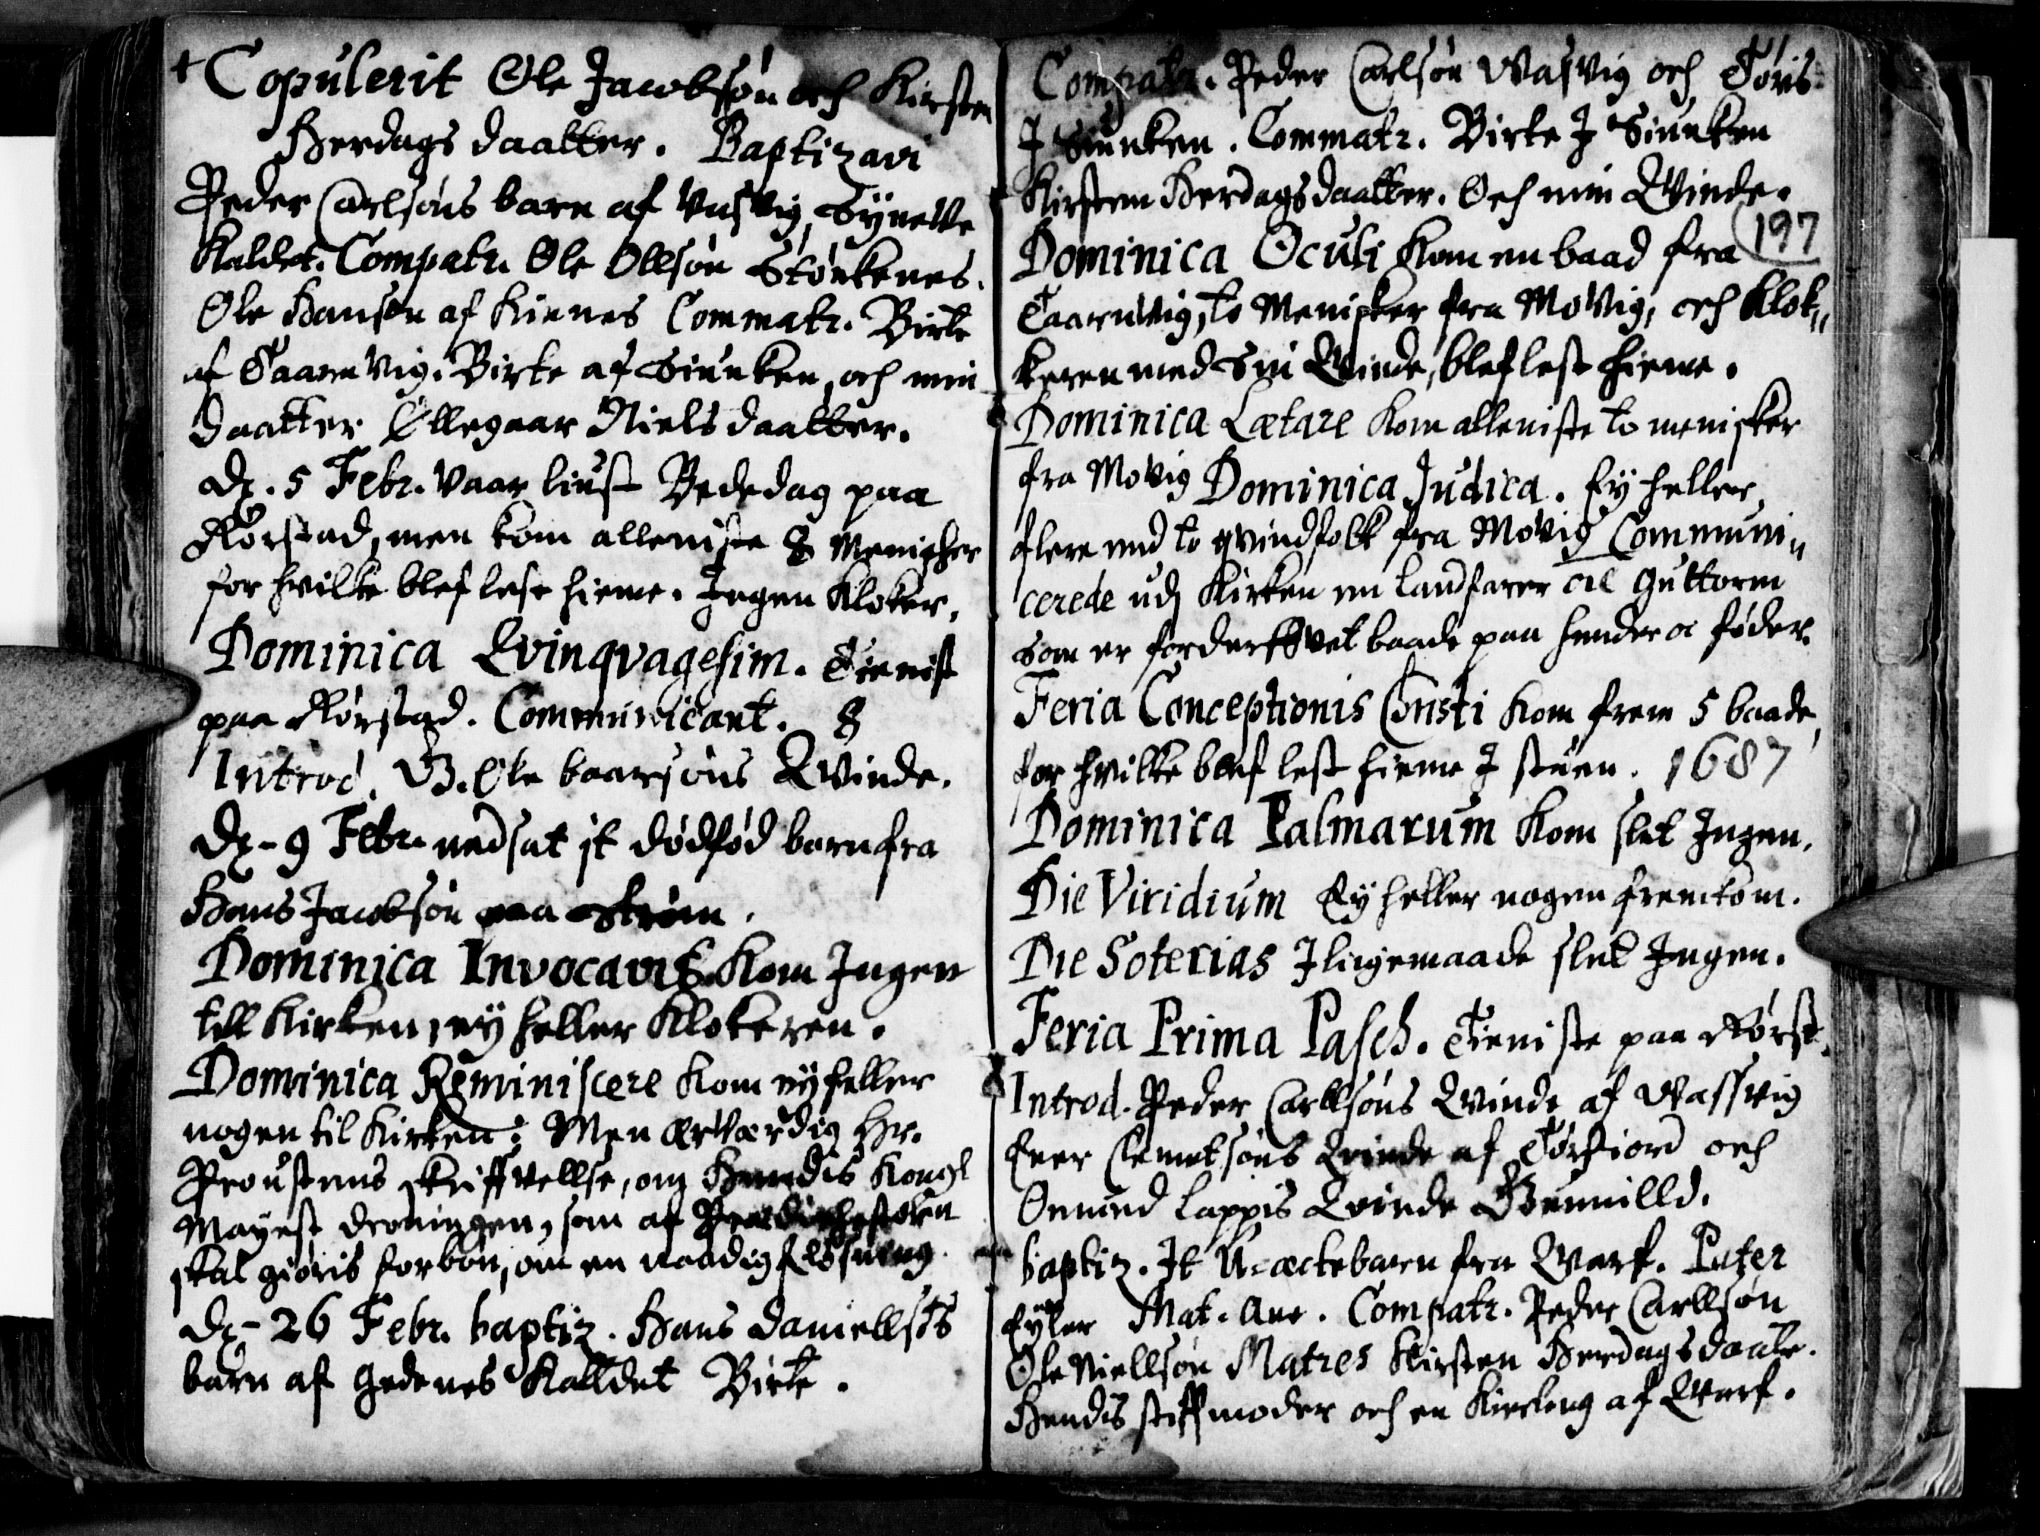 Copulerit Ole Jacobsøn och Kirsten
Herdags daatter. Baptizavi
Peder Carlsøns barn af Vasvig, Syneve
Kaldet. Compatr. Ole Ollsøn Størkenes.
Ole Hansøn af Kienes Commatr. Birte
af Taarnvig. Birte af Siunken, och min
daatter Ellegaar Niels daatter.
D. 5 Febr. vaar liust Bededag paa
Rørstad, men kom alleniste 8 Menisker
for hvilke blef lest hieme. Ingen Kloker.
Dominica Qvinqvagesim. Tienist
paa Rørstad. Communicant. 8
Introd. Ole baarsøns Qvinde.
D. 9 Febr. nedsat it dødfød barn fra
Hans Jacobsøn paa Strøm.
Dominica Invocavit Kom Ingen
till Kirken, ey heller Klokeren.
Dominica Reminiscere Kom ey heller
nogen til Kirken: Men Ærværdig Hr.
Proustens skriffvellse, om Hendis Kongl
Mayest droningen, som af
skal giøris forbøn, om en naadig
D. 26 Febr. baptiz. Hans Daniells
barn af Gedenes Kalldet Birte.
Compatr. Peder Carlsøn Vasvig och Tøris
I Siunken. Commatr. Birte I Siunken
Kirsten Herdagsdaatter. Och min Qvinde.
197
Dominica Oculi Kom en baad fra
Taarnvig, to Menisker fra Movig, och Klok„
keren med sin Qvinde, blef lest hieme.
Dominica Lætare Kom alleniste to menisker
fra Movig Dominica Judica. Ey heller
flere end to qvindfolk fra Movig Communi„
cerede udj Kirken en landfarer Guttorm
som er forderffvet baade paa hender oc føder.
Feria Conceptionis Christi Kom frem 5 baade,
for hvilke blef lest hieme I stuen. 1687
Dominica Palmarum Kom slet Ingen.
Die Viridium Ey heller nogen fremkom.
Die Soterias Iligemaade slet Ingen.
Feria Prima Pasch. Tieniste paa Rørst.
Introd. Peder Carllsøns Qvinde af Vassvig
Ener Clemetsøns Qvinde af Tørfiord och
Onnund Lappis Qvinde Gunnilld.
baptiz. It U-æctebarn fra Qvarf. Pater
Eyler Mat. Ane. Compatr. Peder Carllsøn
Ole Niellsøn Matres Kirsten Herdagsdaatr.
Hendis stiffmoder och en Kierling af Qvarf.